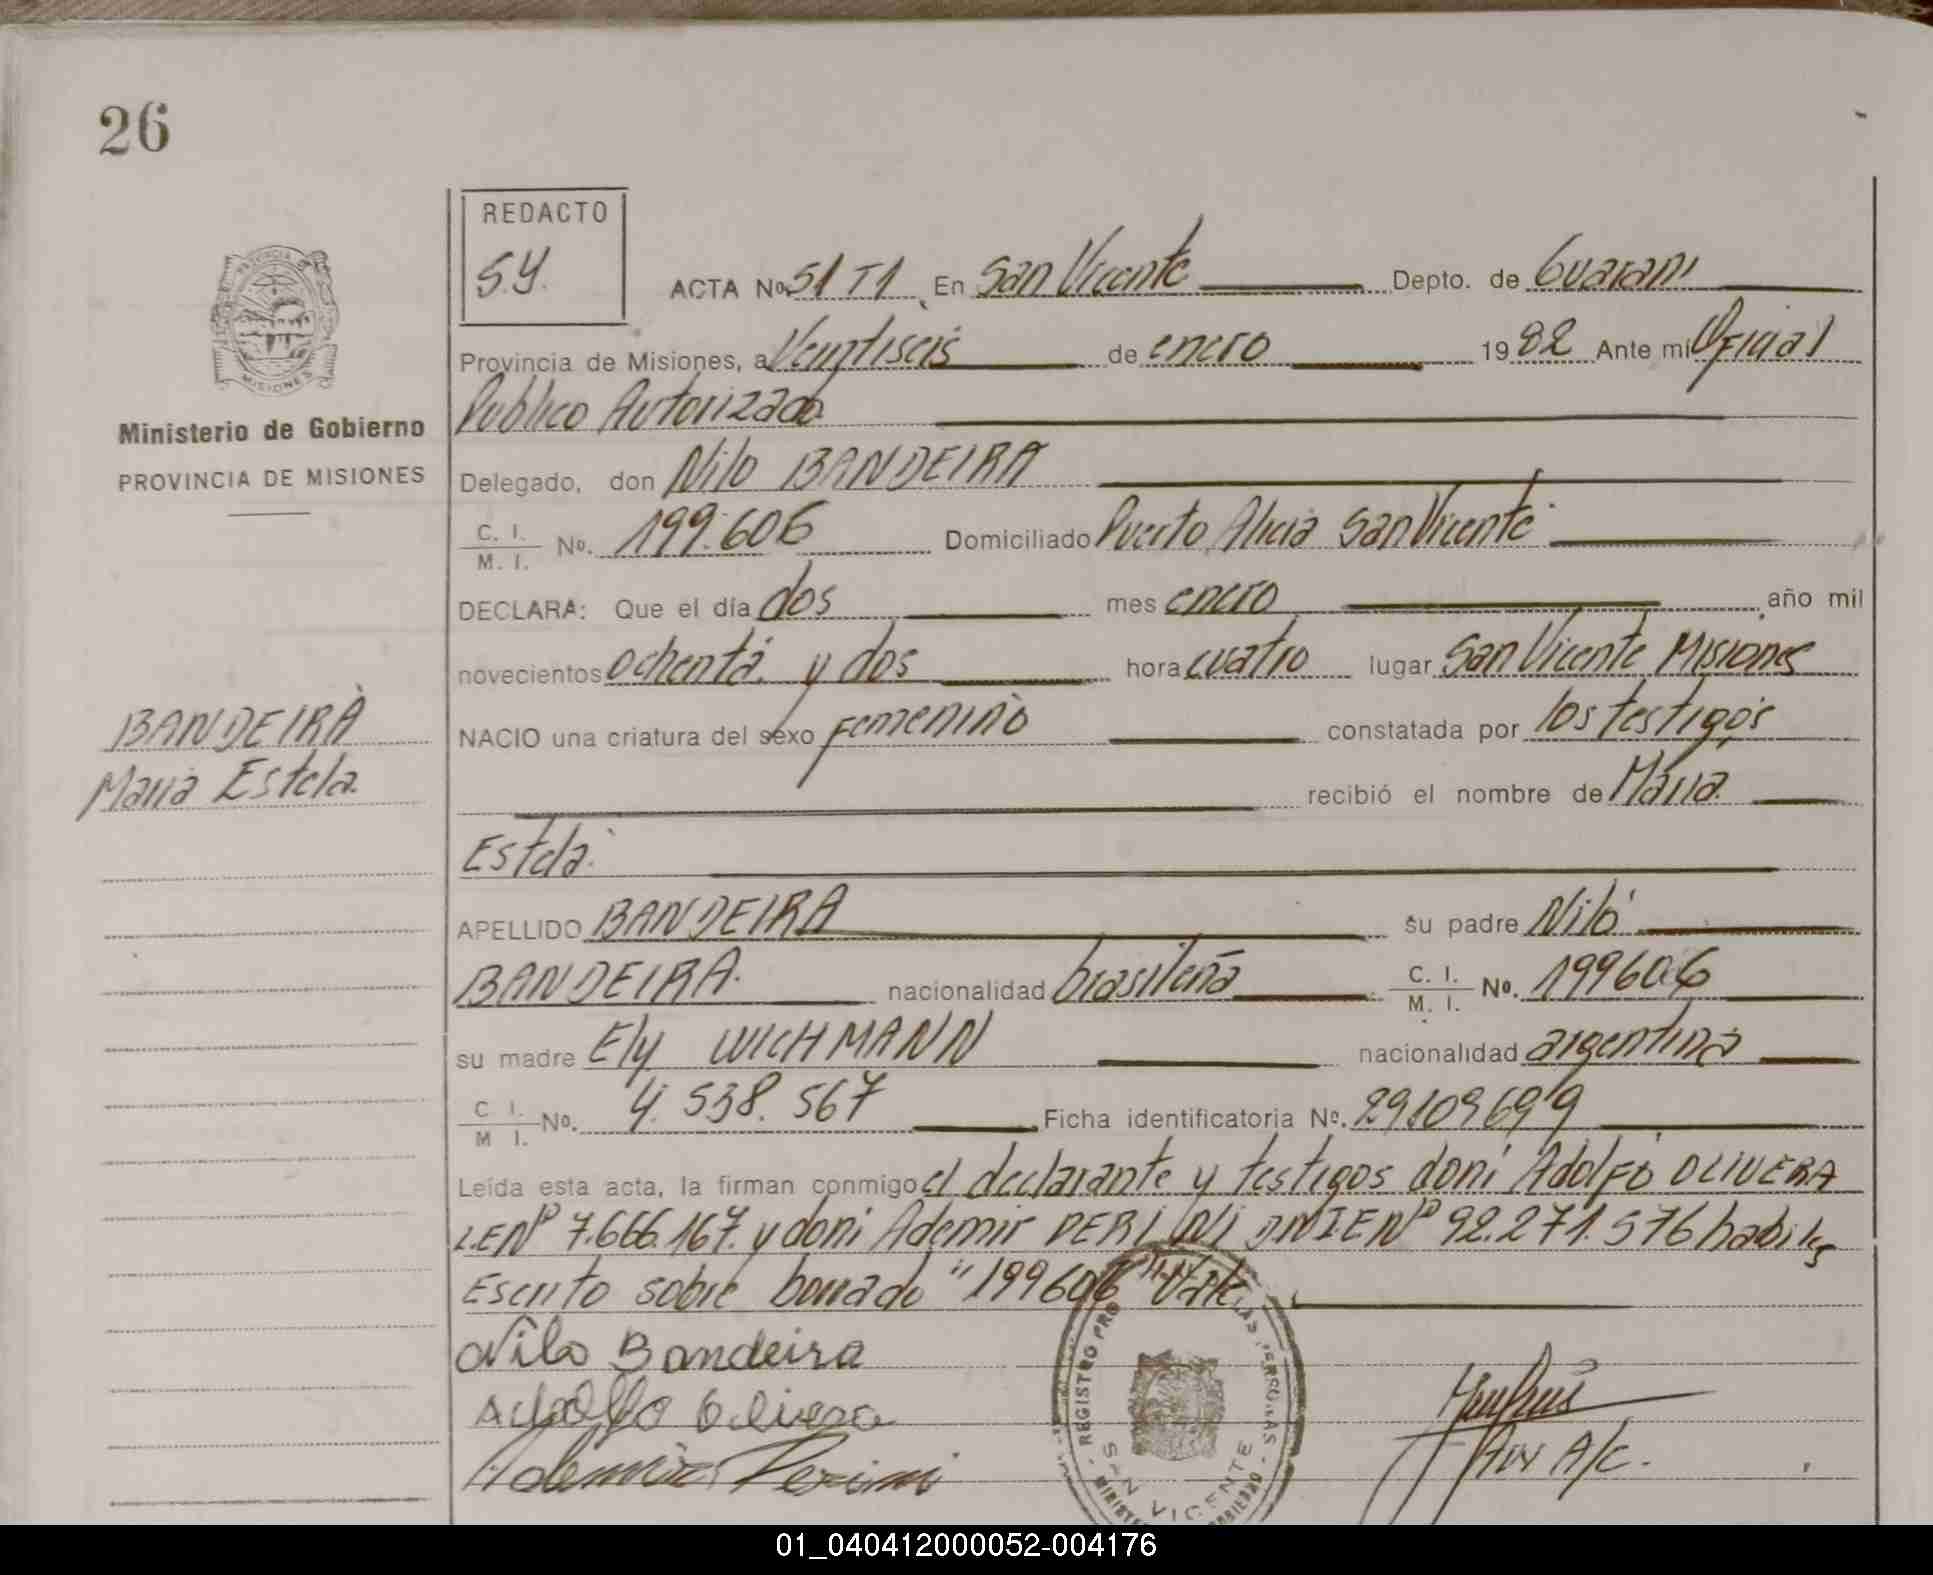 26
REDACTO
S.Y.
ACTA No. 51 T1 En San Vicente Depto. de Guarani
Provincia de Misiones, a Veintiseis de enero 1982 Ante mi Oficial
Publico Autorizado
PROVINCIA DE
MISIONES
Ministerio de Gobierno
PROVINCIA DE MISIONES
Delegado, don Nilo BANDEIRA
C. I.
M. I. No. 199.606 Domiciliado Puerto Alicia San Vicente
DECLARA: Que el día dos mes enero año mil
novecientos ochenta y dos hora cuatro lugar San Vicente Misiones
BANDEIRA
Maria Estela
NACIO una criatura del sexo femenino constatada por los testigos
recibió el nombre de Maria
Estela
APELLIDO BANDEIRA su padre Nilo
BANDEIRA. nacionalidad brasileña C. I.
M. I. No. 199606
su madre Ely WICHMANN nacionalidad argentina
C I.
M I. No. 4. 538. 567 Ficha identificatoria No. 29109699
Leída esta acta, la firman conmigo el declarante y testigos doni Adolfo OLIVERA
L.E Nº 7.666.167. y doni Ademir PERINI DNIE Nº 92.271.576 habiles
Escrito sobre borrado "199606" Vale
Nilo Bandeira
Adolfo Olivera
Ademir Perini
REGISTRO PRO LAS PERSONAS
SAN VICENTE
A/C.
01_040412000052-004176